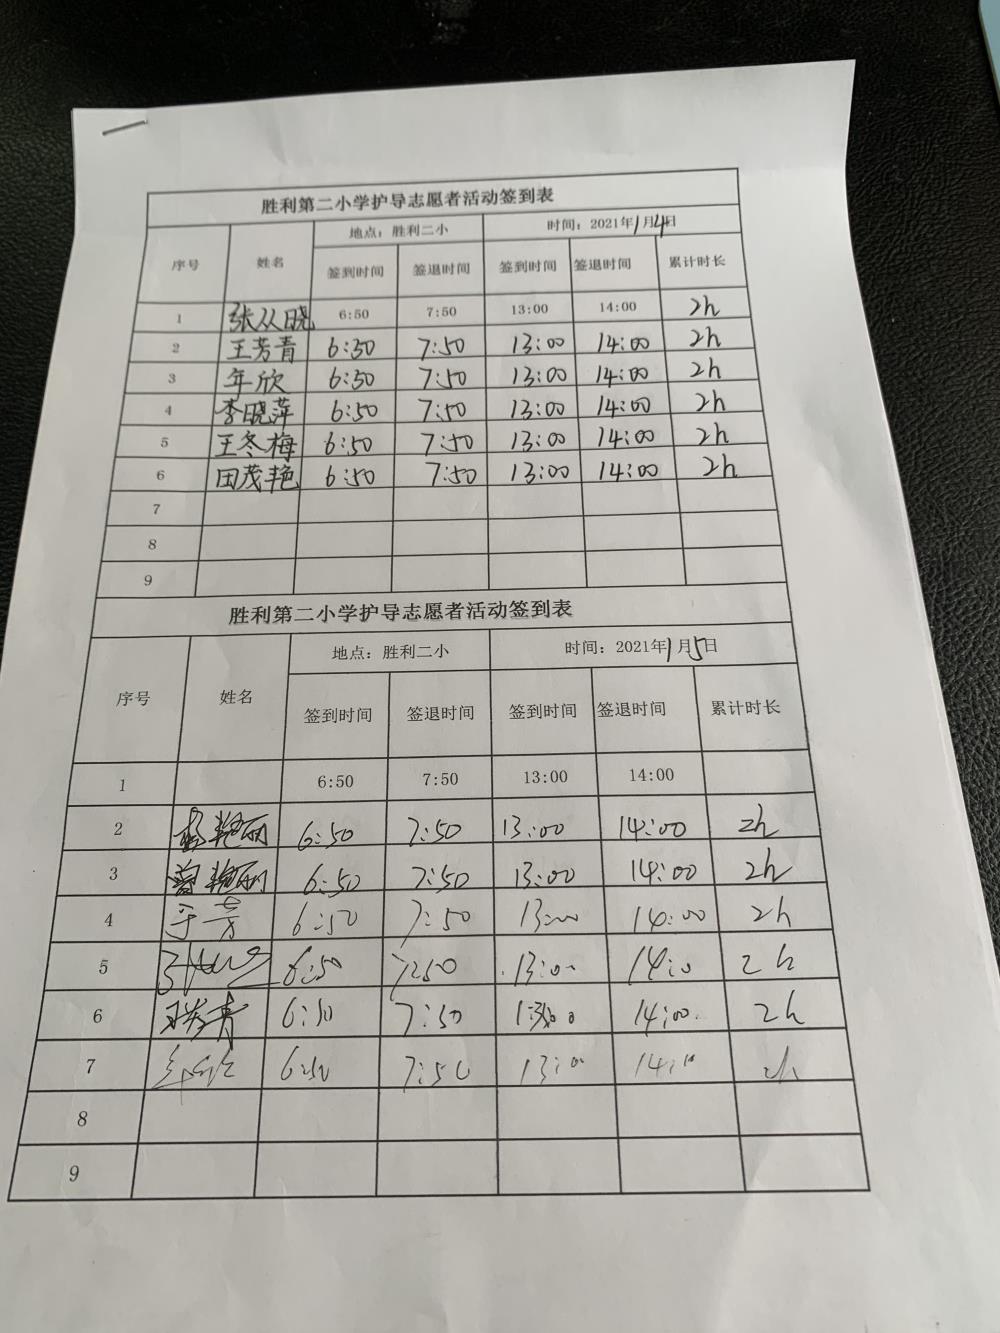 胜利第二小学护导志愿者活动签到表
地点：胜利二小 时间：2021年1月4日
序号 姓名 签到时间 签退时间 签到时间 签退时间 累计时长
1 张从晓 6:50 7:50 13:00 14:00 2h
2 王芳青 6:50 7:50 13:00 14:00 2h
3 年欣 6:50 7:50 13:00 14:00 2h
4 李晓萍 6:50 7:50 13:00 14:00 2h
5 王冬梅 6:50 7:50 13:00 14:00 2h
6 田茂艳 6:50 7:50 13:00 14:00 2h
7
8
9
胜利第二小学护导志愿者活动签到表
地点：胜利二小 时间：2021年1月5日
序号 姓名 签到时间 签退时间 签到时间 签退时间 累计时长
1 6:50 7:50 13:00 14:00
2 艳丽 6:50 7:50 13:00 14:00 2h
3 艳丽 6:50 7:50 13:00 14:00 2h
4 于芳 6:50 7:50 13:00 14:00 2h
5 6:50 7:50 13:00 14:0 2h
6 王芳青 6:50 7:50 14:00 2h
7 年欣 6:50 7:50 13:00 14:10 2h
8
9